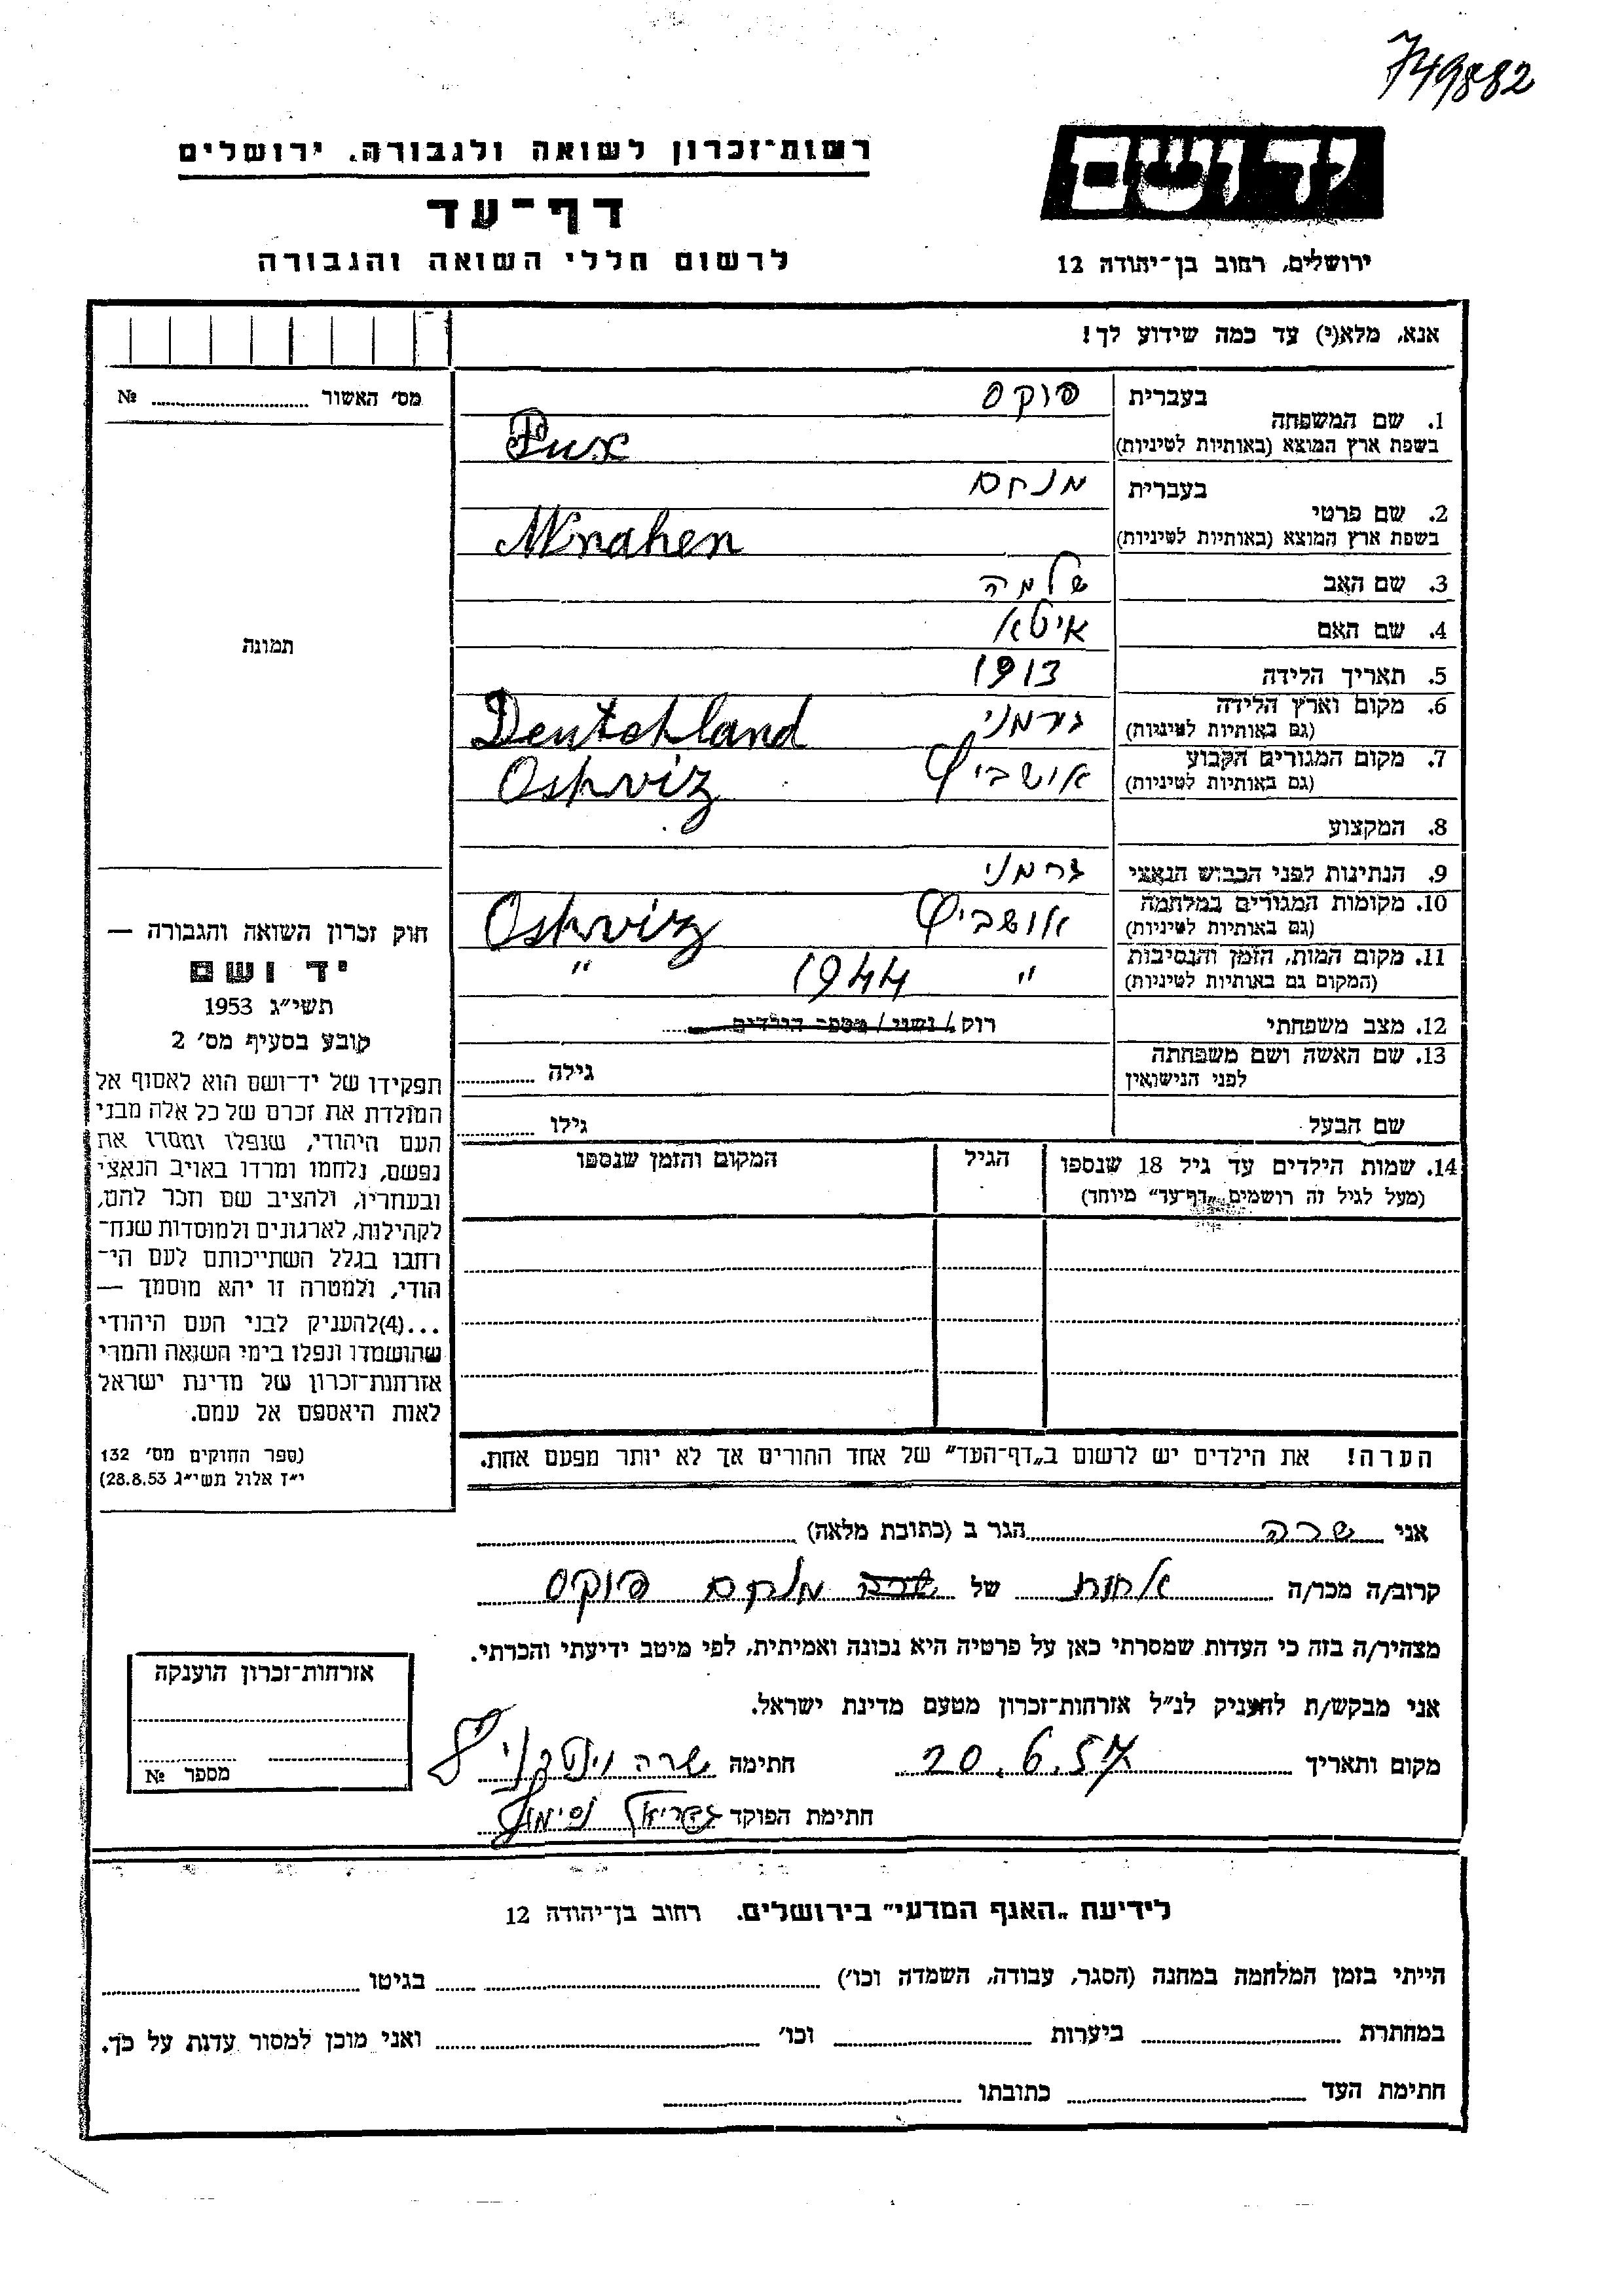 749882
רשות־זכרון לשואה ולגבורה. ירושלים
יד ושם
דף־עד
לרשום חללי השואה והגבורה
ירושלים, רחוב בן־יהודה 12
אנא, מלא(י) עד כמה שידוע לך!
מס׳ האשור № ............
תמונה
בעברית פוקס
1. שם המשפחה
בשפת ארץ המוצא (באותיות לטיניות) Fux
בעברית מנחם
2. שם פרטי
בשפת ארץ המוצא (באותיות לטיניות) Mnahen
3. שם האב שלמה
4. שם האם איטא
5. תאריך הלידה 1913
6. מקום וארץ הלידה גרמני Deutchland
(גם באותיות לטיניות)
7. מקום המגורים הקבוע אושביץ Oshviz
(גם באותיות לטיניות)
8. המקצוע
9. הנתינות לפני הכבוש הנאצי גרמני
10. מקומות המגורים במלחמה אושביץ Oshviz
(גם באותיות לטיניות)
11. מקום המות, הזמן והנסיבות " 1944 "
(המקום גם באותיות לטיניות)
12. מצב משפחתי רוק / נשוי / מספר הילדים ......
13. שם האשה ושם משפחתה
לפני הנישואין גילה ............
שם הבעל גילו ............
14. שמות הילדים עד גיל 18 שנספו הגיל המקום והזמן שנספו
(מעל לגיל זה רושמים „דף־עד” מיוחד)
הערה! את הילדים יש לרשום ב„דף־העד” של אחד ההורים אך לא יותר מפעם אחת.
חוק זכרון השואה והגבורה —
יד ושם
תשי״ג 1953
קובע בסעיף מס׳ 2
תפקידו של יד־ושם הוא לאסוף אל
המולדת את זכרם של כל אלה מבני
העם היהודי, שנפלו ומסרו את
נפשם, נלחמו ומרדו באויב הנאצי
ובעוזריו, ולהציב שם וזכר להם,
לקהילות, לארגונים ולמוסדות שנח־
רבו בגלל השתייכותם לעם הי־
הודי, ולמטרה זו יהא מוסמך —
...(4)להעניק לבני העם היהודי
שהושמדו ונפלו בימי השואה והמרי
אזרחות־זכרון של מדינת ישראל
לאות היאספם אל עמם.
(ספר החוקים מס׳ 132
י״ז אלול תשי״ג 28.8.53)
אני שרה הגר ב (כתובת מלאה) ............
קרוב/ה מכר/ה אחות של שרה מנחם פוקס
מצהיר/ה בזה כי העדות שמסרתי כאן על פרטיה היא נכונה ואמיתית, לפי מיטב ידיעתי והכרתי.
אני מבקש/ת להעניק לנ״ל אזרחות־זכרון מטעם מדינת ישראל.
מקום ותאריך 20.6.57 חתימה שרה
חתימת הפוקד
אזרחות־זכרון הוענקה
מספר №
לידיעת „האגף המדעי” בירושלים. רחוב בן־יהודה 12
הייתי בזמן המלחמה במחנה (הסגר, עבודה, השמדה וכו׳) ............ בגיטו ............
במחתרת ............ ביערות ............ וכו׳ ............ ואני מוכן למסור עדות על כך.
חתימת העד ............ כתובתו ............